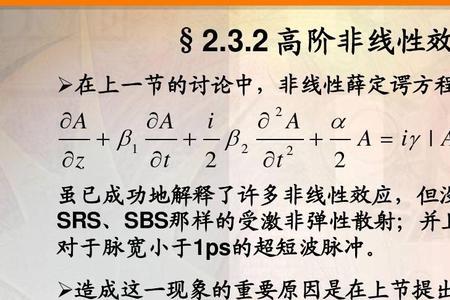 §2.3.2 高阶非线性效
➢在上一节的讨论中，非线性薛定谔方程
∂A/∂z + β₁ ∂A/∂t + i/2 β₂ ∂²A/∂t² + α/2 A = iγ | A
虽已成功地解释了许多非线性效应，但没
SRS、SBS那样的受激非弹性散射；并且
对于脉宽小于1ps的超短波脉冲。
➢造成这一现象的重要原因是在上节提出